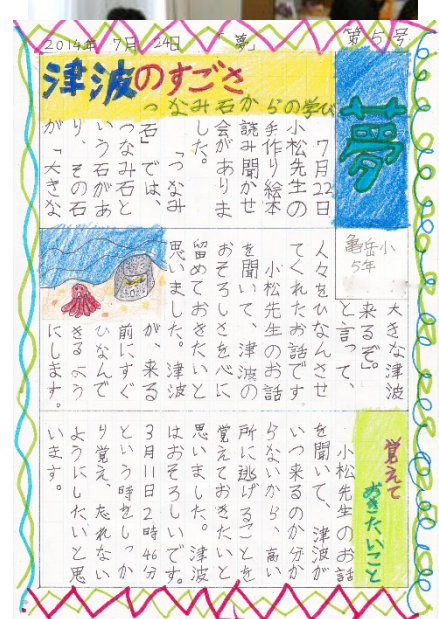 2014年 7月 24日 「夢」 第5号
夢
亀岳小
5年
津波のすごさ
つなみ石からの学び
7月22日
小松先生の
手作り絵本
読み聞かせ
会がありま
した。
「つなみ
石」では、
つなみ石と
いう石があ
り、その石
が「大きな
大きな津波
来るぞ。」
と言って、
人々をひなんさせ
てくれたお話です。
小松先生のお話
を聞いて、津波の
おそろしさを心に
留めておきたいと
思いました。津波
が、来る
前にすぐ
ひなんで
きるよう
にします。
覚えて
おきたいこと
小松先生のお話
を聞いて、津波が
いつ来るのか分か
らないから、高い
所に逃げることを
覚えておきたいと
思いました。津波
はおそろしいです。
3月11日2時46分
という時をしっか
り覚え、忘れない
ようにしたいと思
います。